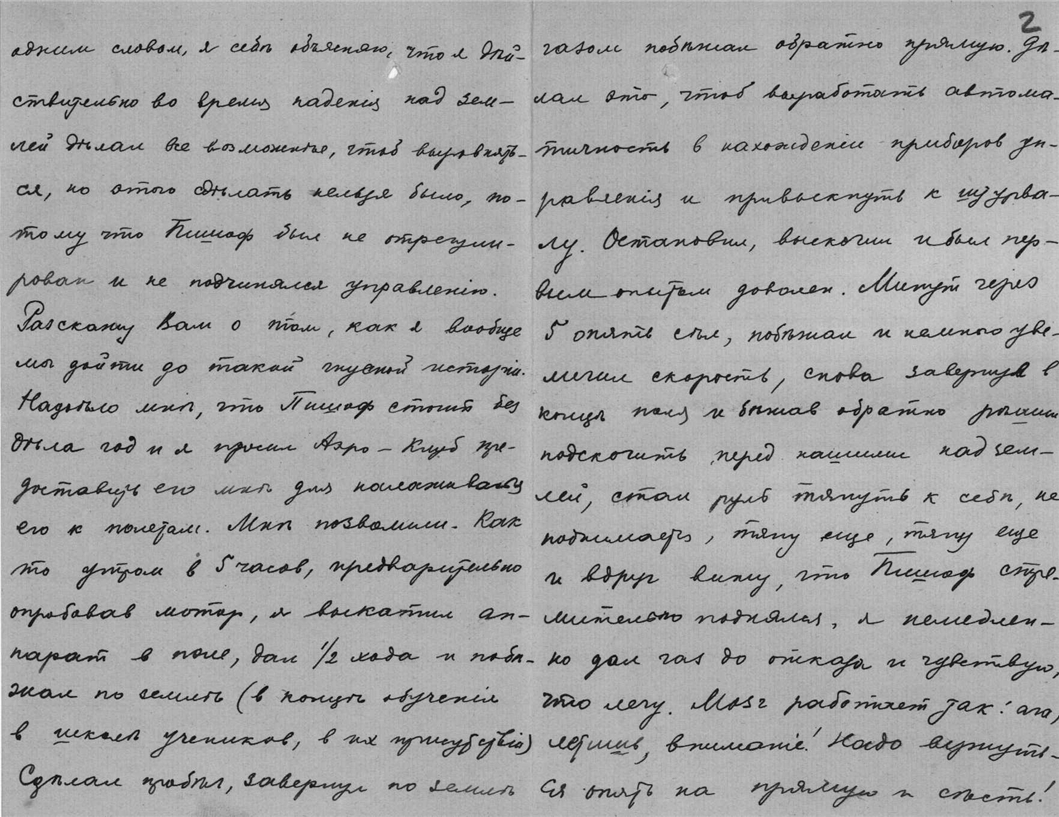 одним словом, я себѣ объясняю, что я дѣй-
ствительно во время паденія над зем-
лей дѣлал все возможное, чтоб выровнять-
ся, но этого сдѣлать нельзя было, по-
тому что Пишоф был не отрегули-
рован и не подчинялся управленію.
Разскажу Вам о том, как я вообще
мог дойти до такой гнусной исторіи.
Надоѣло мнѣ, что Пишоф стоит без
дѣла год и я просил Аэро-Клуб пре-
доставить его мнѣ для налаживанья
его к полетам. Мнѣ позволили. Как
то утром в 5 часов, предварительно
опробовав мотор, я выкатил ап-
парат в поле, дал 1/2 хода и побѣ-
жал по землѣ (в концѣ обученія
в школѣ учеников, в их присутствіи)
Сдѣлал пробѣг, завернул по землѣ
2
газом побѣжал обратно прямую. Дѣ-
лал это, чтоб выработать автома-
тичность в нахожденіи приборов уп-
равленія и привыкнуть к штурва-
лу. Остановил, выскочил и был пер-
вым опытом доволен. Минут через
5 опять сѣл, побѣжал и немного уве-
личил скорость, снова завернул в
концѣ поля и бѣжав обратно рѣшил
подскочить перед нашими над зем-
лей, стал руль тянуть к себѣ, не
поднимается, тяну еще, тяну еще
и вдруг вижу, что Пишоф стре-
мительно поднялся, я немедлен-
но дал газ до отказа и чувствую,
что лечу. Мозг работает так: ага,
летишь, вниманіе! Надо вернуть-
ся опять на прямую и сѣсть!